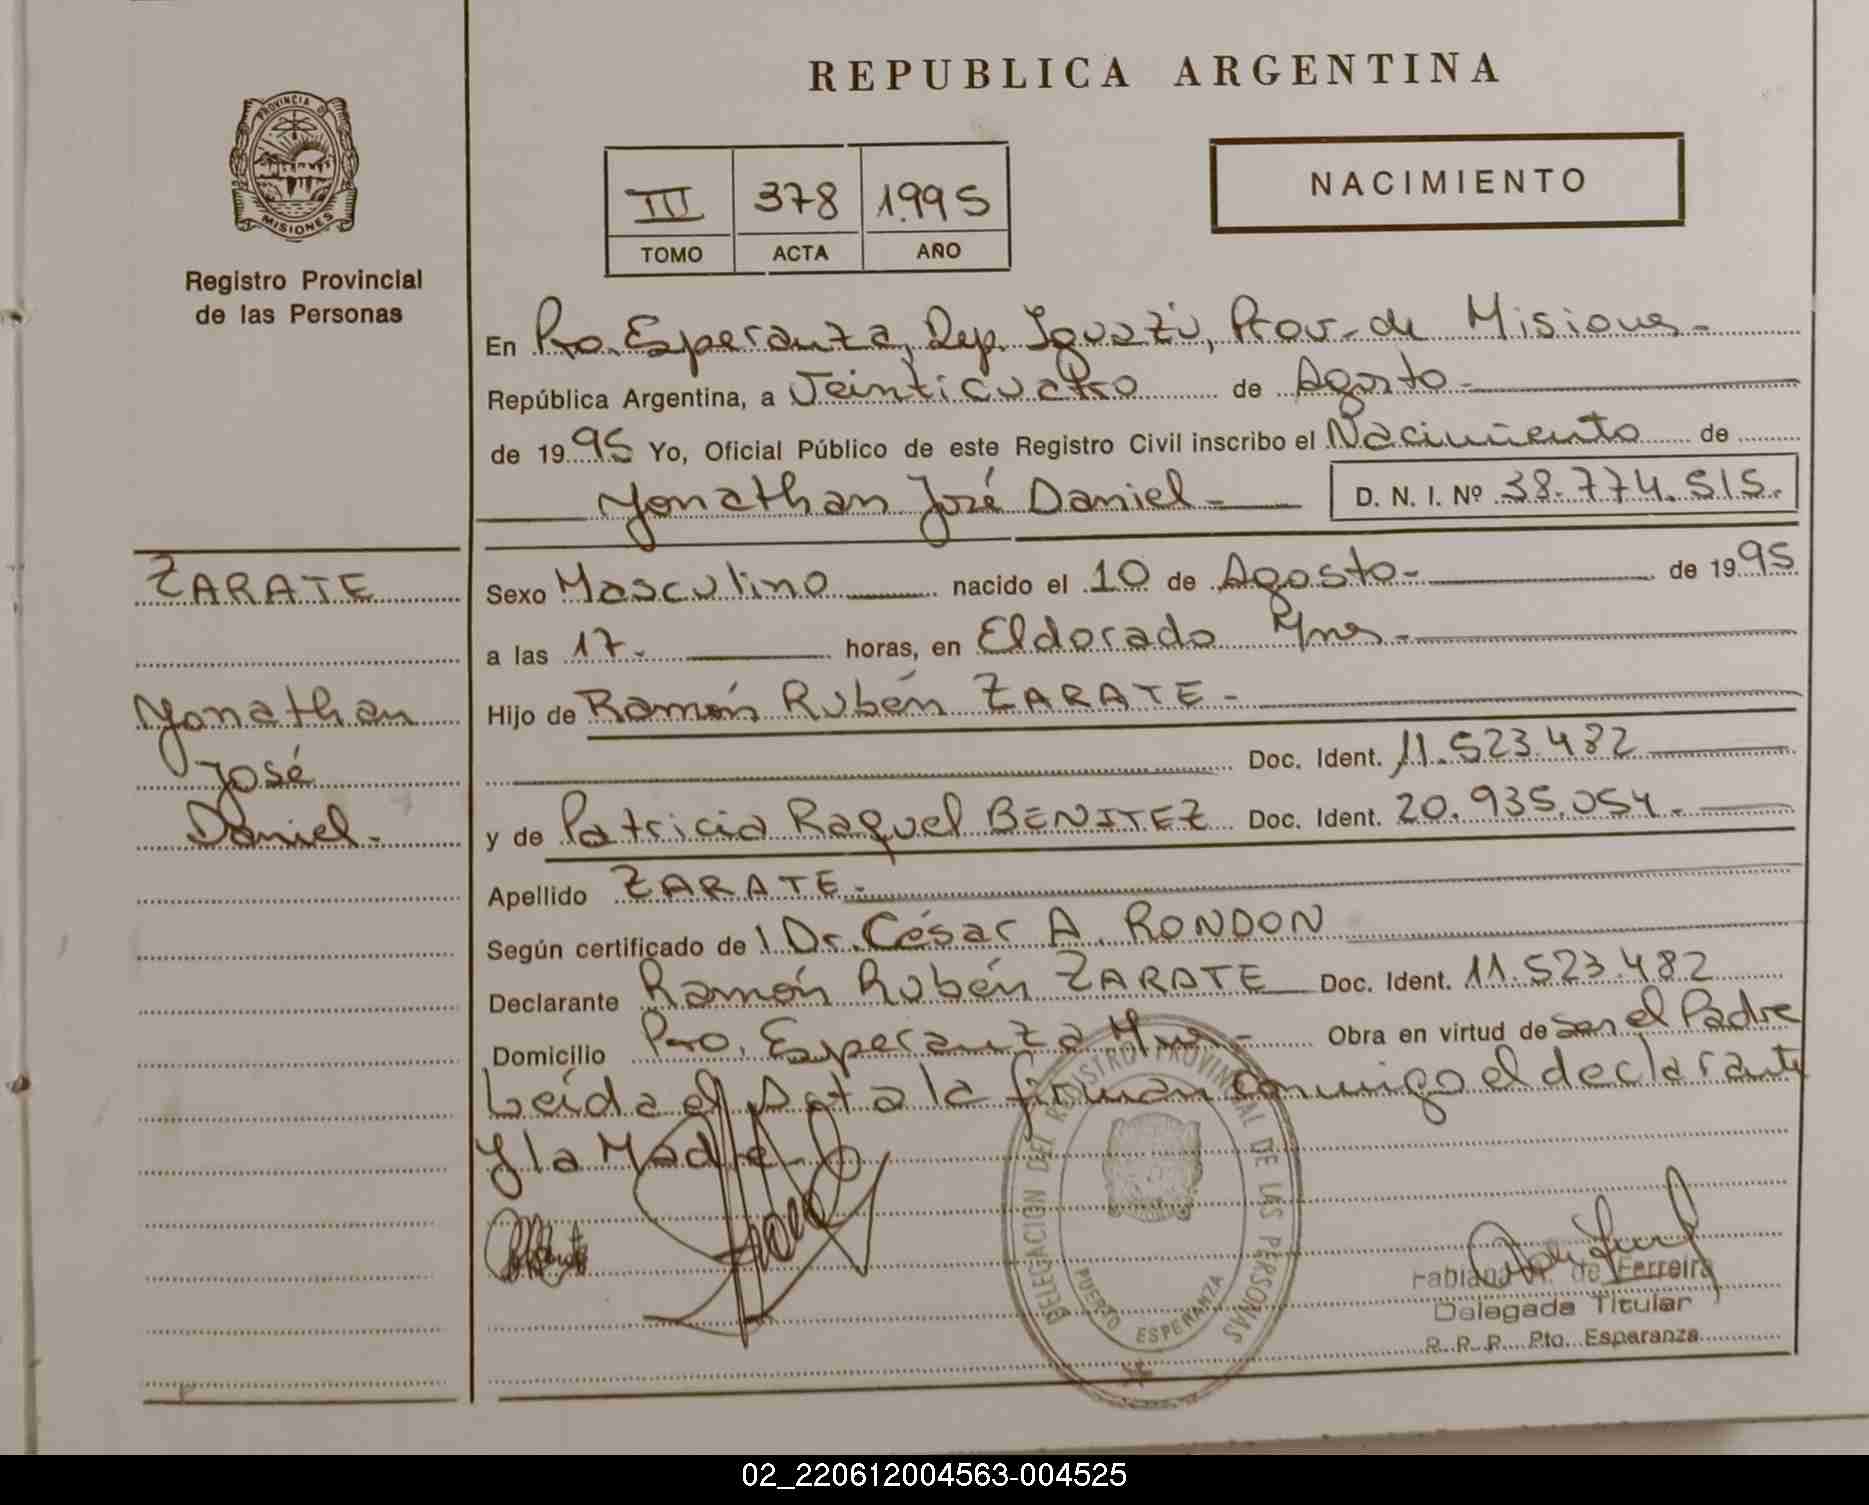 REPUBLICA ARGENTINA
PROVINCIA DE
MISIONES
Registro Provincial
de las Personas
III 378 1995
TOMO ACTA AÑO
NACIMIENTO
En Pto. Esperanza, Dep. Iguazú, Prov. de Misiones-
República Argentina, a Veinticuatro de Agosto-
de 1995 Yo, Oficial Público de este Registro Civil inscribo el Nacimiento de
Yonathan José Daniel- D. N. I. Nº 38.774.515.
ZARATE
Yonathan
José
Daniel-
Sexo Masculino nacido el 10 de Agosto- de 1995
a las 17.- horas, en Eldorado Mnes-
Hijo de Ramón Rubén ZARATE-
Doc. Ident. 11.523.482
y de Patricia Raquel BENITEZ Doc. Ident. 20.935.054.-
Apellido ZARATE-
Según certificado de l Dr. César A. RONDON
Declarante Ramón Rubén ZARATE Doc. Ident. 11.523.482
Domicilio Pto. Esperanza Mnes- Obra en virtud de ser el Padre
Leída el Acta la firman conmigo el declarante
y la Madre-
DELEGACION DEL REGISTRO PROVINCIAL DE LAS PERSONAS
PUERTO ESPERANZA
Fabiana de Ferreira
Delegada Titular
R. P. P. Pto. Esperanza
02_220612004563-004525